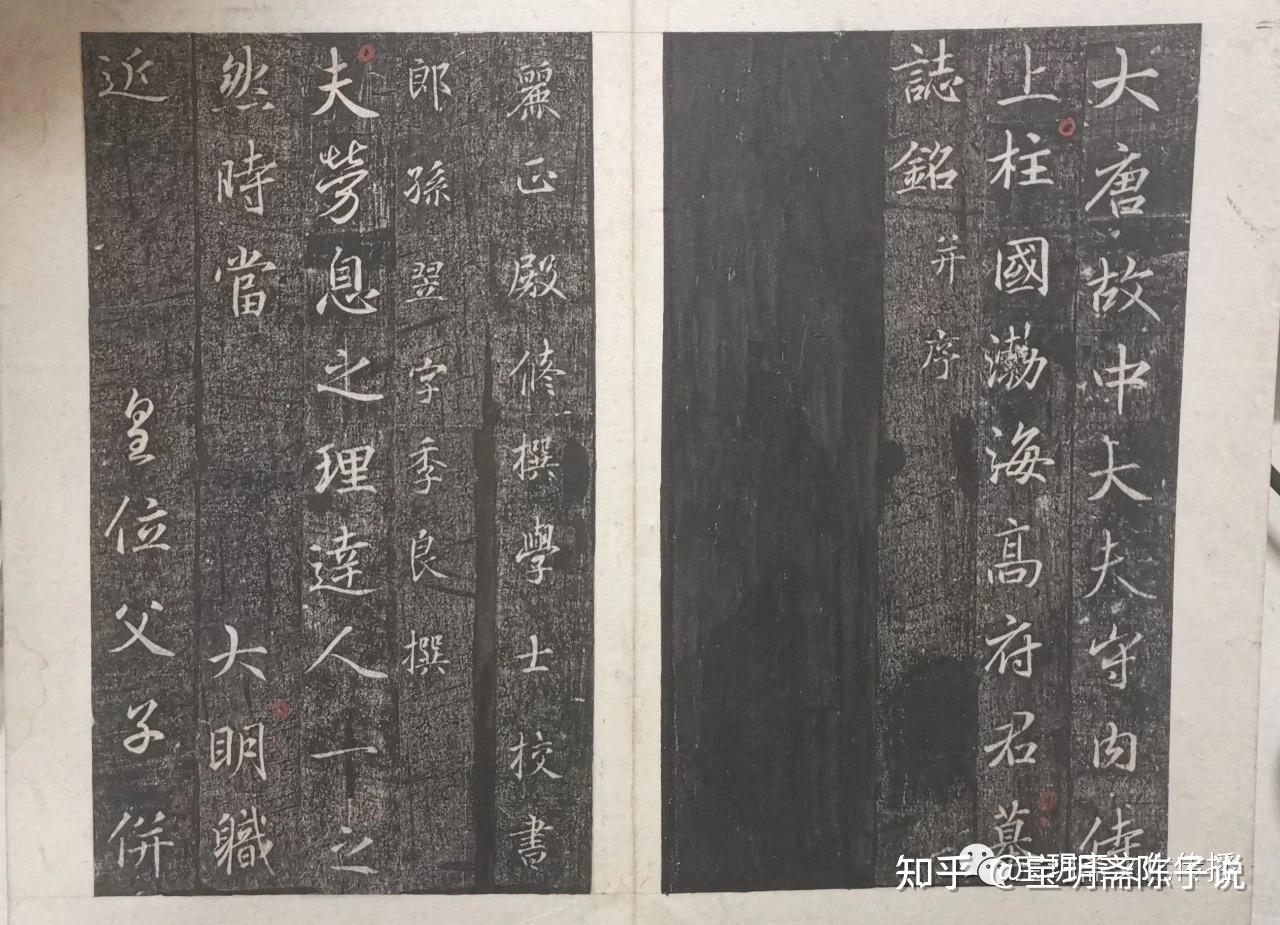 大唐故中大夫守内侍
上柱國渤海高府君墓
誌銘并序
麗正殿修撰學士校書
郎孫翌字季良撰
夫勞息之理達人一之
然時當大明職
近皇位父子併
知乎 @宝玥斋陈子说